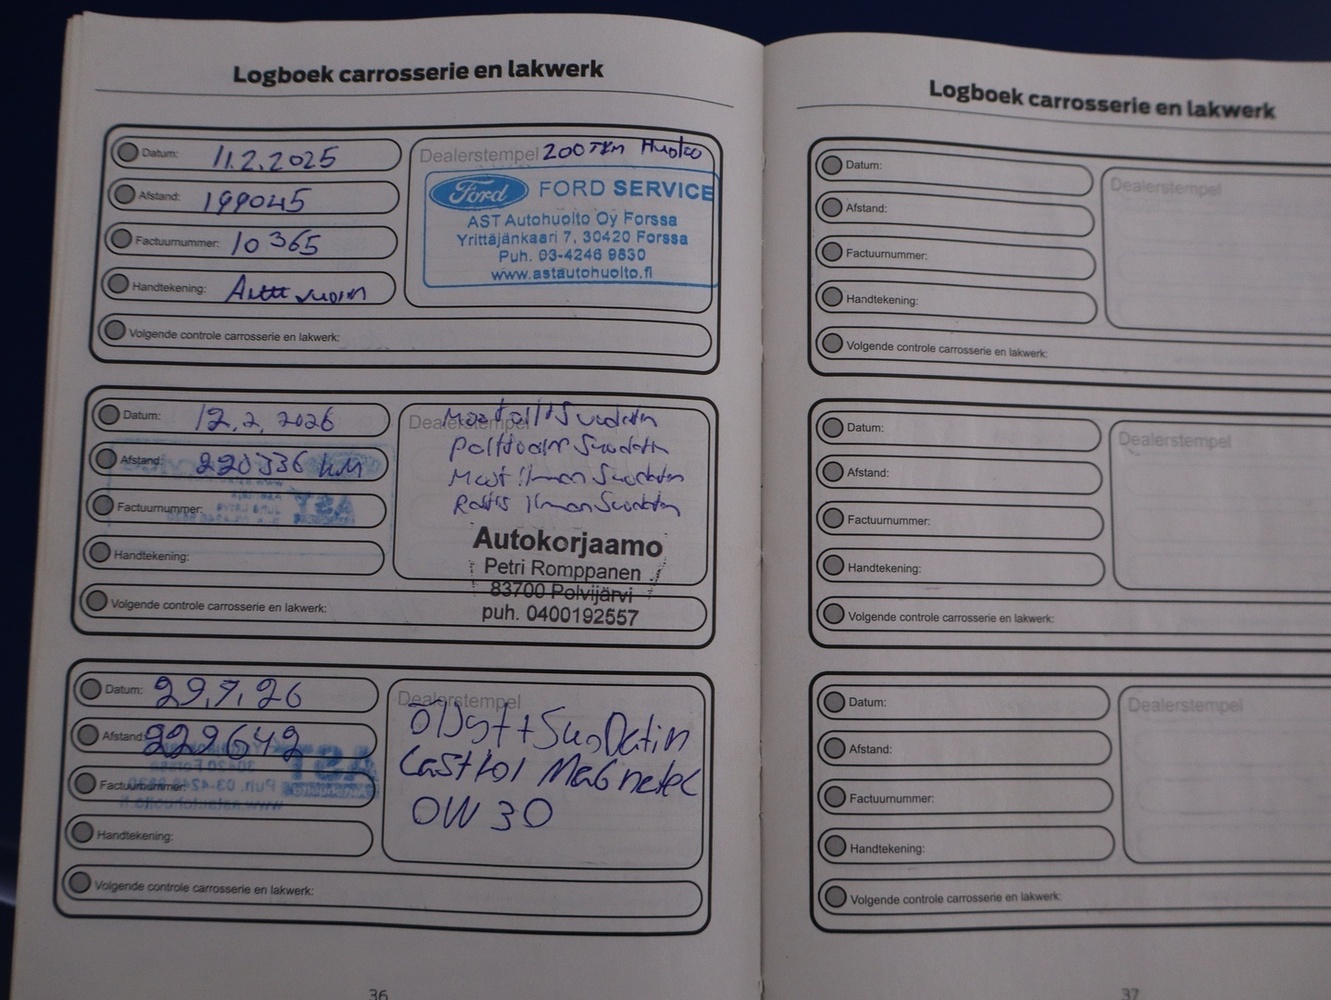 Logboek carrosserie en lakwerk
Datum: 11.2.2025
Afstand: 199045
Factuurnummer: 10365
Handtekening:
Dealerstempel 200 TKm Huolto
Ford FORD SERVICE
AST Autohuolto Oy Forssa
Yrittäjänkaari 7, 30420 Forssa
Puh. 03-4246 9830
www.astautohuolto.fi
Volgende controle carrosserie en lakwerk:
Datum: 12.2.2026
Afstand: 220336 KM
Factuurnummer:
Handtekening:
Dealerstempel
Suodatin
Suodatin
Suodatin
Suodatin
Autokorjaamo
Petri Romppanen
83700 Polvijärvi
puh. 0400192557
Volgende controle carrosserie en lakwerk:
Datum: 29.7.26
Afstand: 229642
Factuurnummer:
Handtekening:
Dealerstempel
ÖlJyt + SuoDatin
Castrol MaGnatec
0W30
Volgende controle carrosserie en lakwerk:
36
Logboek carrosserie en lakwerk
Datum:
Afstand:
Factuurnummer:
Handtekening:
Dealerstempel
Volgende controle carrosserie en lakwerk:
Datum:
Afstand:
Factuurnummer:
Handtekening:
Dealerstempel
Volgende controle carrosserie en lakwerk:
Datum:
Afstand:
Factuurnummer:
Handtekening:
Dealerstempel
Volgende controle carrosserie en lakwerk:
37